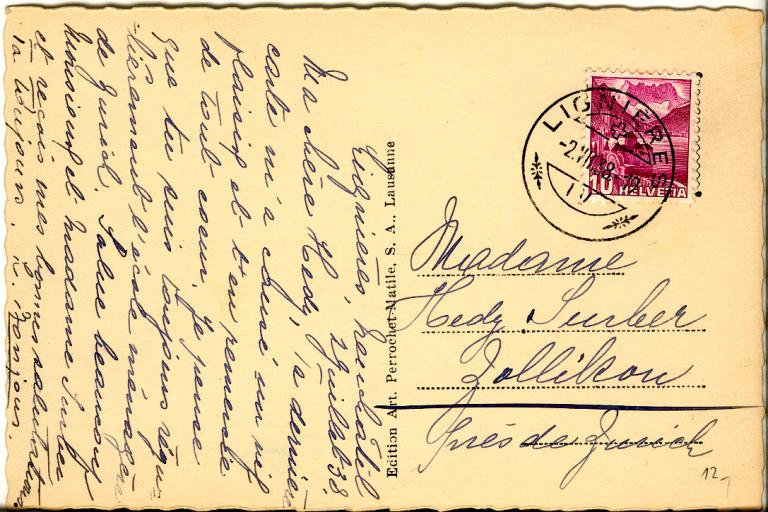 Lignières, Neuchâtel
2 Juillet 38.
Ma chère Hedy, ta dernière
carte m'a causé un vif
plaisir et t'en remercie
de tout coeur. Je pense
que tu suis toujours régu-
lièrement l'école ménagère
de Zurich. Salue beaucoup
Monsieur et Madame Surber
et reçois mes bonnes salutations
ta toujours,
Edition Art. Perrochet-Matile, S. A., Lausanne
LIGNIÈRES
10 HELVETIA
Madame
Hedy Surber
Zollikon
Près de Zurich
12.-